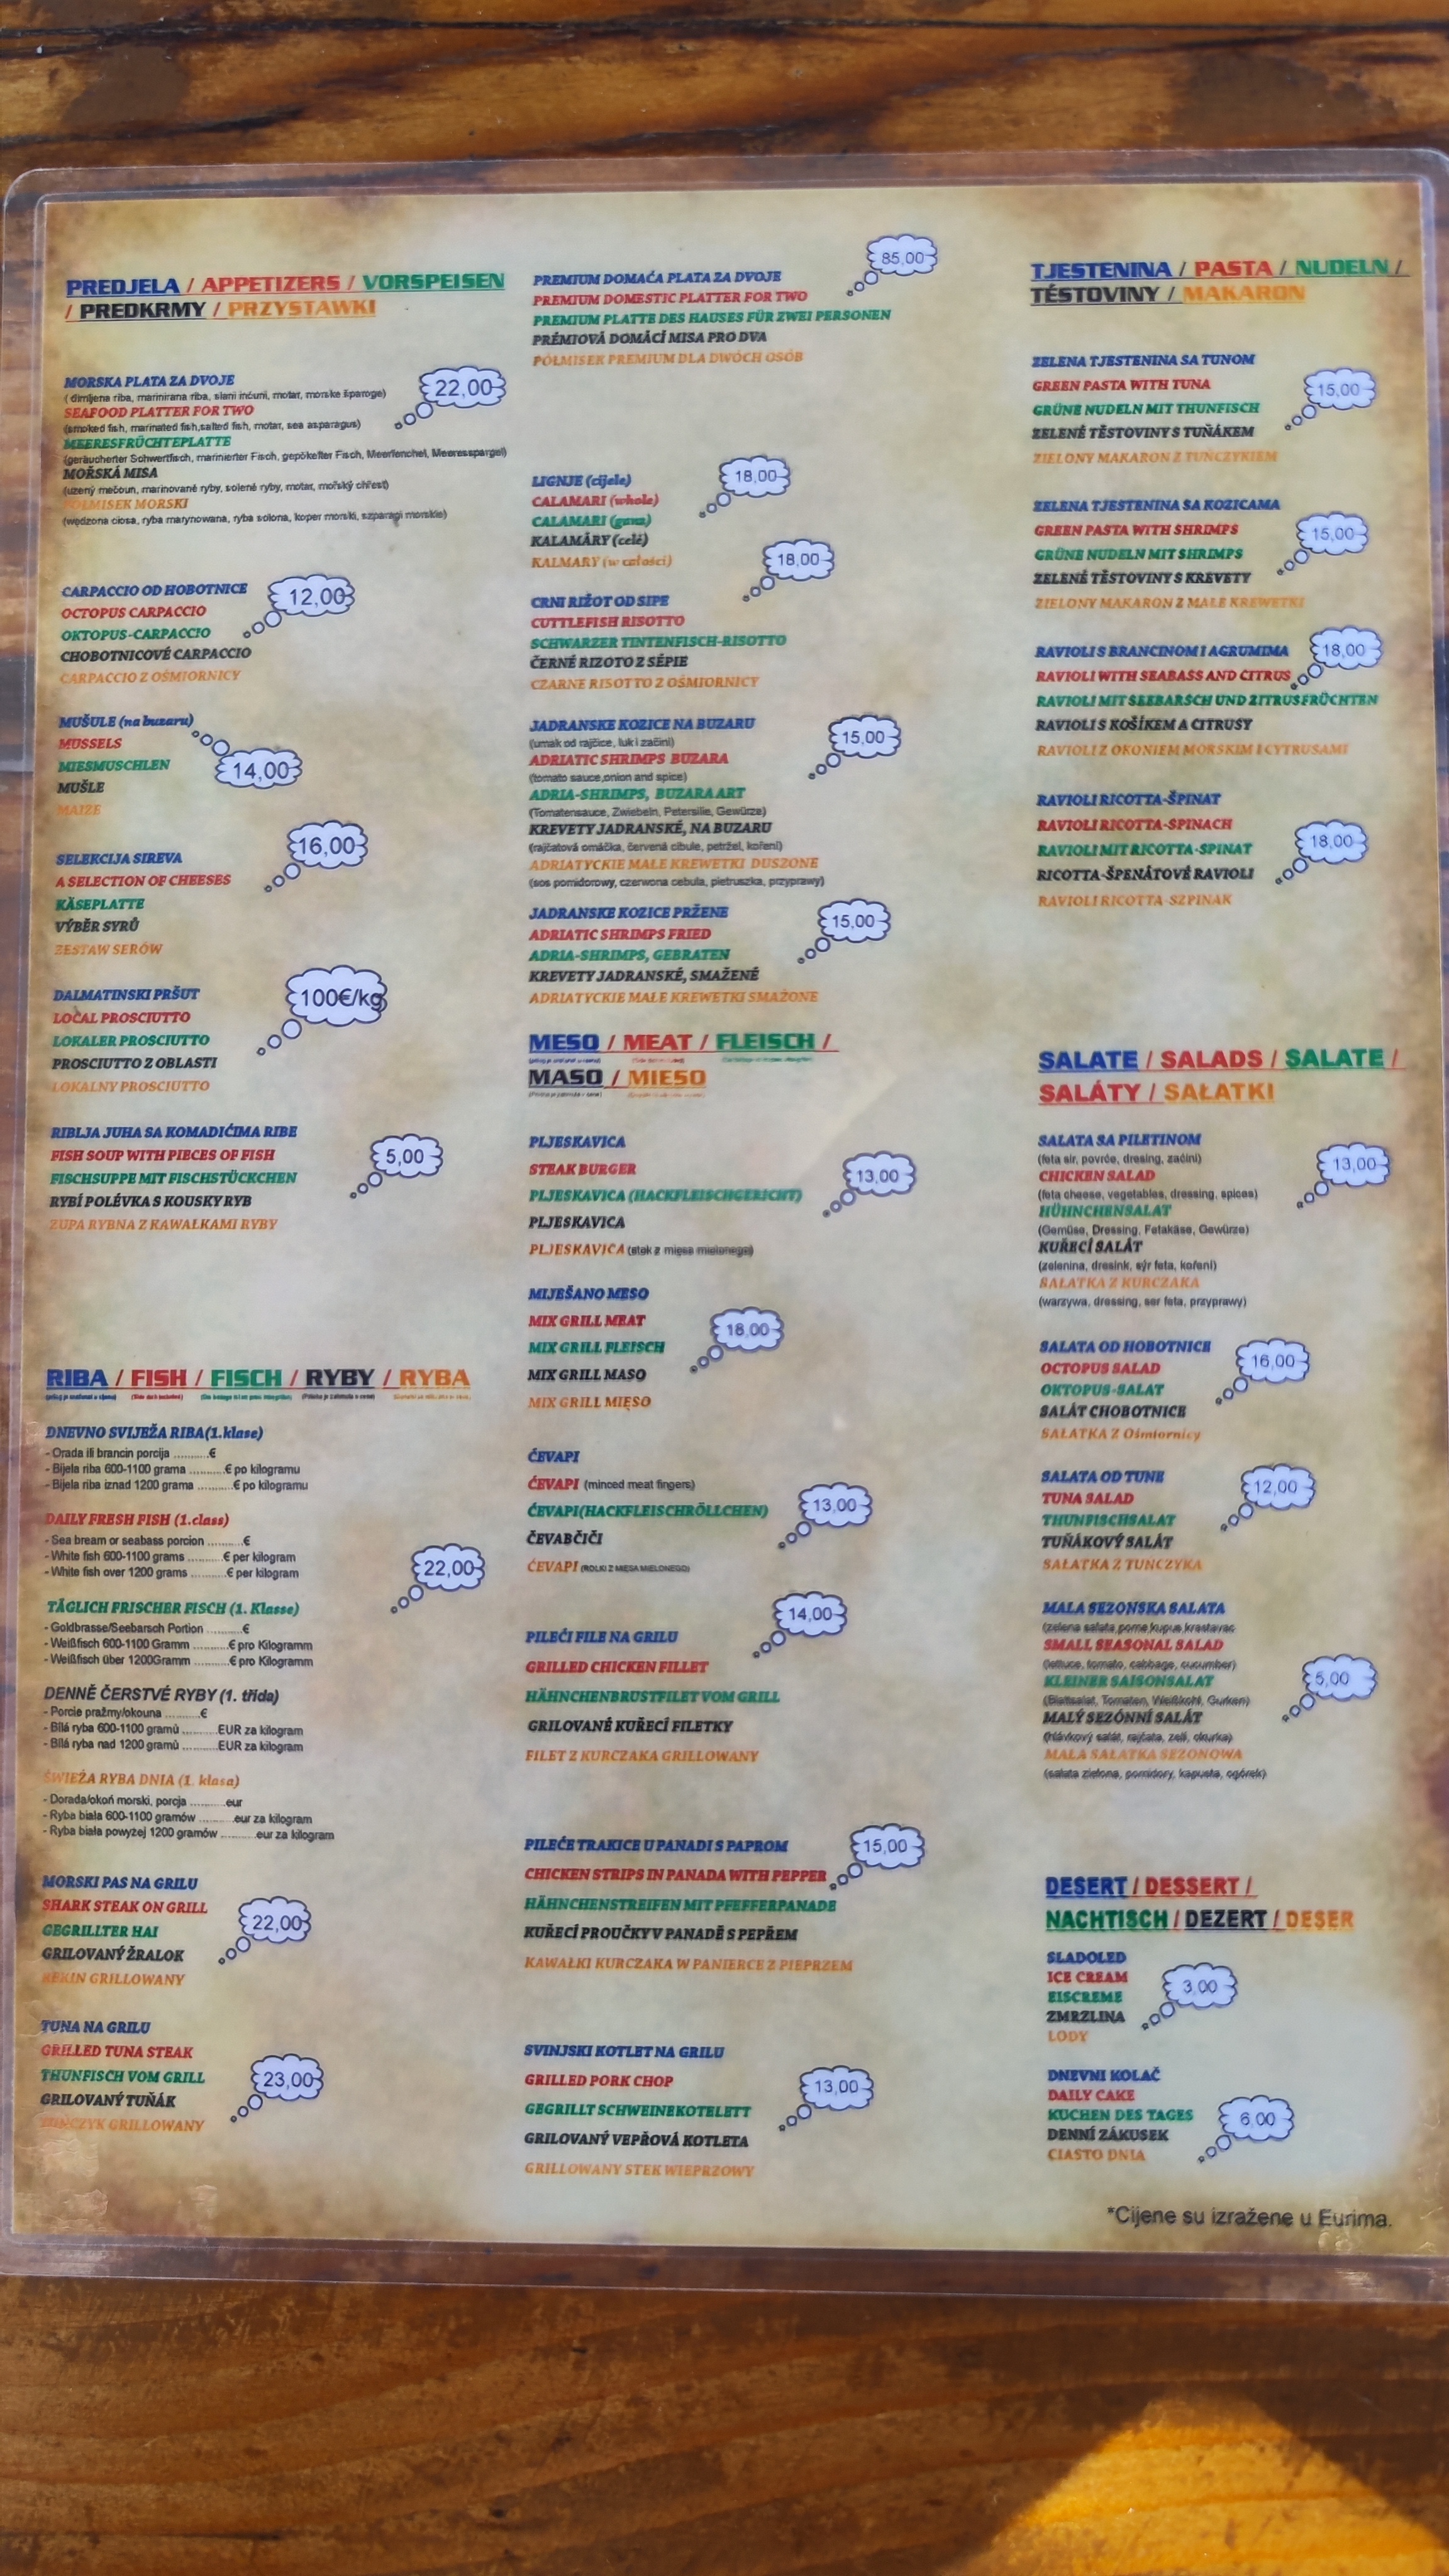 PREDJELA / APPETIZERS / VORSPEISEN
/ PREDKRMY / PRZYSTAWKI
MORSKA PLATA ZA DVOJE
( dimljena riba, marinirana riba, slani inćuni, motar, morske šparoge)
SEAFOOD PLATTER FOR TWO
(smoked fish, marinated fish,salted fish, motar, sea asparagus)
MEERESFRÜCHTEPLATTE
(geräucherter Schwertfisch, marinierter Fisch, gepökelter Fisch, Meerfenchel, Meeresspargel)
MOŘSKÁ MISA
(uzený mečoun, marinované ryby, solené ryby, motar, mořský chřest)
PÓŁMISEK MORSKI
(wędzona ciosa, ryba marynowana, ryba solona, koper morski, szparagi morskie)
22,00
CARPACCIO OD HOBOTNICE
OCTOPUS CARPACCIO
OKTOPUS-CARPACCIO
CHOBOTNICOVÉ CARPACCIO
CARPACCIO Z OŚMIORNICY
12,00
MUŠULE (na buzaru)
MUSSELS
MIESMUSCHLEN
MUŠLE
MAŁŻE
14,00
SELEKCIJA SIREVA
A SELECTION OF CHEESES
KÄSEPLATTE
VÝBĚR SYRŮ
ZESTAW SERÓW
16,00
DALMATINSKI PRŠUT
LOCAL PROSCIUTTO
LOKALER PROSCIUTTO
PROSCIUTTO Z OBLASTI
LOKALNY PROSCIUTTO
100€/kg
RIBLJA JUHA SA KOMADIĆIMA RIBE
FISH SOUP WITH PIECES OF FISH
FISCHSUPPE MIT FISCHSTÜCKCHEN
RYBÍ POLÉVKA S KOUSKY RYB
ZUPA RYBNA Z KAWAŁKAMI RYBY
5,00
RIBA / FISH / FISCH / RYBY / RYBA
DNEVNO SVIJEŽA RIBA(1.klase)
- Orada ili brancin porcija ..........€
- Bijela riba 600-1100 grama ..........€ po kilogramu
- Bijela riba iznad 1200 grama ..........€ po kilogramu
DAILY FRESH FISH (1.class)
- Sea bream or seabass porcion ..........€
- White fish 600-1100 grams ..........€ per kilogram
- White fish over 1200 grams ..........€ per kilogram
TÄGLICH FRISCHER FISCH (1. Klasse)
- Goldbrasse/Seebarsch Portion ..........€
- Weißfisch 600-1100 Gramm ..........€ pro Kilogramm
- Weißfisch über 1200Gramm ..........€ pro Kilogramm
DENNĚ ČERSTVÉ RYBY (1. třída)
- Porcie pražmy/okouna ..........€
- Bílá ryba 600-1100 gramů ..........EUR za kilogram
- Bílá ryba nad 1200 gramů ..........EUR za kilogram
ŚWIEŻA RYBA DNIA (1. klasa)
- Dorada/okoń morski, porcja ..........eur
- Ryba biała 600-1100 gramów ..........eur za kilogram
- Ryba biała powyżej 1200 gramów ..........eur za kilogram
22,00
MORSKI PAS NA GRILU
SHARK STEAK ON GRILL
GEGRILLTER HAI
GRILOVANÝ ŽRALOK
REKIN GRILLOWANY
22,00
TUNA NA GRILU
GRILLED TUNA STEAK
THUNFISCH VOM GRILL
GRILOVANÝ TUŇÁK
TUŃCZYK GRILLOWANY
23,00
PREMIUM DOMAĆA PLATA ZA DVOJE
PREMIUM DOMESTIC PLATTER FOR TWO
PREMIUM PLATTE DES HAUSES FÜR ZWEI PERSONEN
PRÉMIOVÁ DOMÁCÍ MISA PRO DVA
PÓŁMISEK PREMIUM DLA DWÓCH OSÓB
85,00
LIGNJE (cijele)
CALAMARI (whole)
CALAMARI (ganz)
KALAMÁRY (celé)
KALMARY (w całości)
18,00
CRNI RIŽOT OD SIPE
CUTTLEFISH RISOTTO
SCHWARZER TINTENFISCH-RISOTTO
ČERNÉ RIZOTO Z SÉPIE
CZARNE RISOTTO Z OŚMIORNICY
18,00
JADRANSKE KOZICE NA BUZARU
(umak od rajčice, luk i začini)
ADRIATIC SHRIMPS BUZARA
(tomato sauce,onion and spice)
ADRIA-SHRIMPS, BUZARA ART
(Tomatensauce, Zwiebeln, Petersilie, Gewürze)
KREVETY JADRANSKÉ, NA BUZARU
(rajčatová omáčka, červená cibule, petržel, koření)
ADRIATYCKIE MAŁE KREWETKI DUSZONE
(sos pomidorowy, czerwona cebula, pietruszka, przyprawy)
15,00
JADRANSKE KOZICE PRŽENE
ADRIATIC SHRIMPS FRIED
ADRIA-SHRIMPS, GEBRATEN
KREVETY JADRANSKÉ, SMAŽENÉ
ADRIATYCKIE MAŁE KREWETKI SMAŻONE
15,00
MESO / MEAT / FLEISCH /
MASO / MIESO
PLJESKAVICA
STEAK BURGER
PLJESKAVICA (HACKFLEISCHGERICHT)
PLJESKAVICA
PLJESKAVICA (stek z mięsa mielonego)
13,00
MIJEŠANO MESO
MIX GRILL MEAT
MIX GRILL FLEISCH
MIX GRILL MASO
MIX GRILL MIĘSO
18,00
ĆEVAPI
ĆEVAPI (minced meat fingers)
ĆEVAPI(HACKFLEISCHRÖLLCHEN)
ČEVABČIČI
ĆEVAPI (ROLKI Z MIĘSA MIELONEGO)
13,00
PILEĆI FILE NA GRILU
GRILLED CHICKEN FILLET
HÄHNCHENBRUSTFILET VOM GRILL
GRILOVANÉ KUŘECÍ FILETKY
FILET Z KURCZAKA GRILLOWANY
14,00
PILEĆE TRAKICE U PANADI S PAPROM
CHICKEN STRIPS IN PANADA WITH PEPPER
HÄHNCHENSTREIFEN MIT PFEFFERPANADE
KUŘECÍ PROUČKY V PANADĚ S PEPŘEM
KAWAŁKI KURCZAKA W PANIERCE Z PIEPRZEM
15,00
SVINJSKI KOTLET NA GRILU
GRILLED PORK CHOP
GEGRILLT SCHWEINEKOTELETT
GRILOVANÝ VEPŘOVÁ KOTLETA
GRILLOWANY STEK WIEPRZOWY
13,00
TJESTENINA / PASTA / NUDELN /
TÉSTOVINY / MAKARON
ZELENA TJESTENINA SA TUNOM
GREEN PASTA WITH TUNA
GRÜNE NUDELN MIT THUNFISCH
ZELENÉ TĚSTOVINY S TUŇÁKEM
ZIELONY MAKARON Z TUŃCZYKIEM
15,00
ZELENA TJESTENINA SA KOZICAMA
GREEN PASTA WITH SHRIMPS
GRÜNE NUDELN MIT SHRIMPS
ZELENÉ TĚSTOVINY S KREVETY
ZIELONY MAKARON Z MAŁE KREWETKI
15,00
RAVIOLI S BRANCINOM I AGRUMIMA
RAVIOLI WITH SEABASS AND CITRUS
RAVIOLI MIT SEEBARSCH UND ZITRUSFRÜCHTEN
RAVIOLI S KOŠÍKEM A CITRUSY
RAVIOLI Z OKONIEM MORSKIM I CYTRUSAMI
18,00
RAVIOLI RICOTTA-ŠPINAT
RAVIOLI RICOTTA-SPINACH
RAVIOLI MIT RICOTTA-SPINAT
RICOTTA-ŠPENÁTOVÉ RAVIOLI
RAVIOLI RICOTTA-SZPINAK
18,00
SALATE / SALADS / SALATE /
SALÁTY / SAŁATKI
SALATA SA PILETINOM
(feta sir, povrće, dresing, začini)
CHICKEN SALAD
(feta cheese, vegetables, dressing, spices)
HÜHNCHENSALAT
(Gemüse, Dressing, Fetakäse, Gewürze)
KUŘECÍ SALÁT
(zelenina, dresink, sýr feta, koření)
SAŁATKA Z KURCZAKA
(warzywa, dressing, ser feta, przyprawy)
13,00
SALATA OD HOBOTNICE
OCTOPUS SALAD
OKTOPUS-SALAT
SALÁT CHOBOTNICE
SAŁATKA Z Ośmiornicy
16,00
SALATA OD TUNE
TUNA SALAD
THUNFISCHSALAT
TUŇÁKOVÝ SALÁT
SAŁATKA Z TUŃCZYKA
12,00
MALA SEZONSKA SALATA
(zelena salata,pome,kupus,krastavac
SMALL SEASONAL SALAD
(lettuce, tomato, cabbage, cucumber)
KLEINER SAISONSALAT
(Blattsalat, Tomaten, Weißkohl, Gurken)
MALÝ SEZÓNNÍ SALÁT
(hlávkový salát, rajčata, zelí, okurka)
MAŁA SAŁATKA SEZONOWA
(sałata zielona, pomidory, kapusta, ogórek)
5,00
DESERT / DESSERT /
NACHTISCH / DEZERT / DESER
SLADOLED
ICE CREAM
EISCREME
ZMRZLINA
LODY
3,00
DNEVNI KOLAČ
DAILY CAKE
KUCHEN DES TAGES
DENNÍ ZÁKUSEK
CIASTO DNIA
6,00
*Cijene su izražene u Eurima.